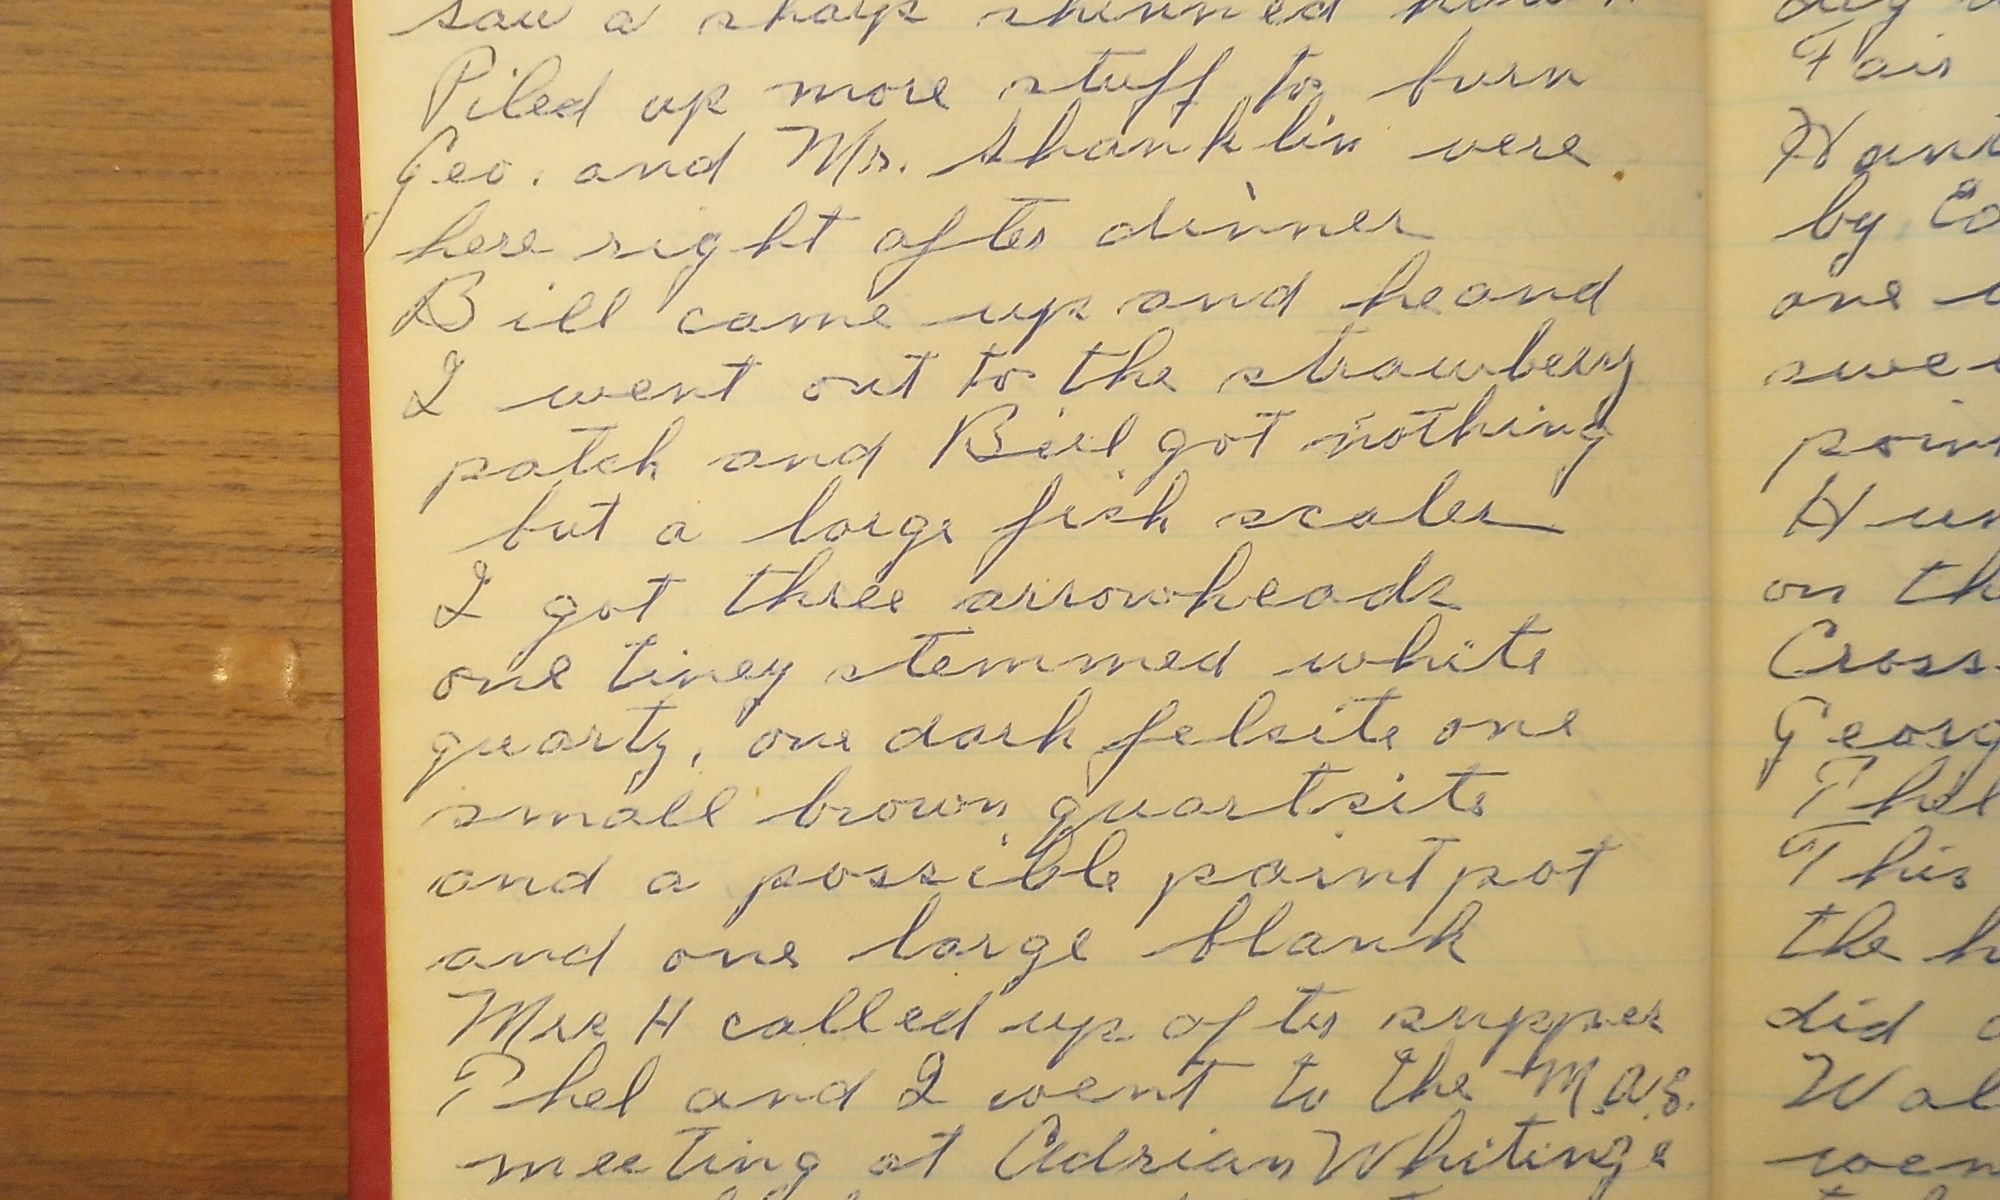 saw a sharp shinned hawk
Piled up more stuff to burn
Geo. and Mr. Shanklin were
here right after dinner
Bill came up and he and
I went out to the strawberry
patch and Bill got nothing
but a large fish scaler
I got three arrowheads
one tiney stemmed white
quartz, one dark felsite one
small brown quartsite
and a possible paint pot
and one large blank
Mrs H called up after supper
Phel and I went to the M.A.S.
meeting at Adrian Whitings
Fair
by
one
on
Phel
This
the
did